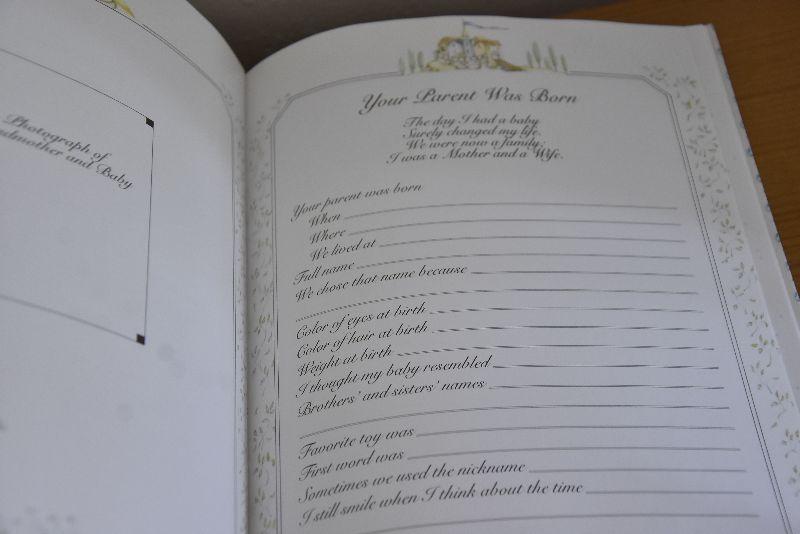 Photograph of
and Baby
Your Parent Was Born
The day I had a baby
Surely changed my life.
We were now a family;
I was a Mother and a Wife.
Your parent was born
When
Where
We lived at
Full name
We chose that name because
Color of eyes at birth
Color of hair at birth
Weight at birth
I thought my baby resembled
Brothers' and sisters' names
Favorite toy was
First word was
Sometimes we used the nickname
I still smile when I think about the time